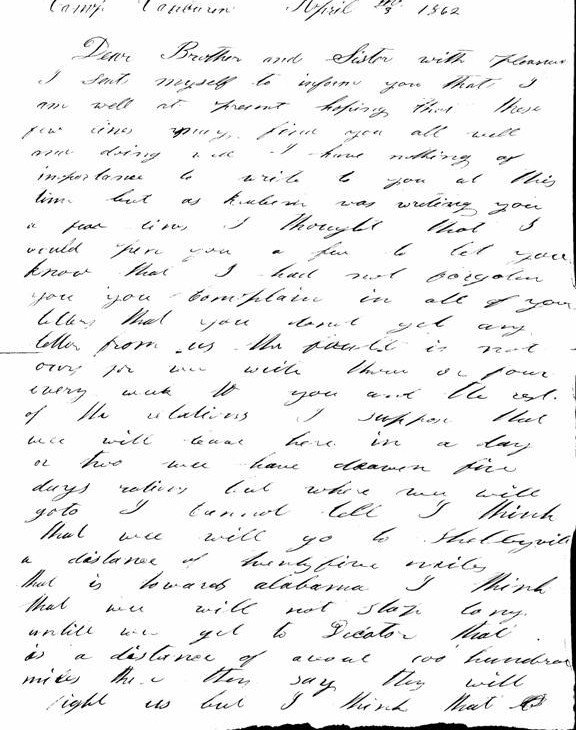 Camp Vanburen April 3 1862
Dear Brother and Sister with pleasure
I seat myself to inform you that I
am well at present hoping that these
few lines may find you all well
and doing well I have nothing of
importance to write to you at this
time but as was writing you
a few lines I thought that I
would pen you a few to let you
know that I had not forgoten
you you complain in all of your
letters that you dont get any
letter from us the fault is not
ours for we write three or four
every week to you and the rest
of the relations I suppose that
wee will leave here in a day
or two wee have drawen five
days rations but where wee will
goto I cannot tell I think
that wee will go to Shelbyvill
a distance of twentyfive miles
that is towards alabama I think
that wee will not stop long
untill we get to Dicator that
is a distance of about hundred
miles there they say they will
fight us but I think that